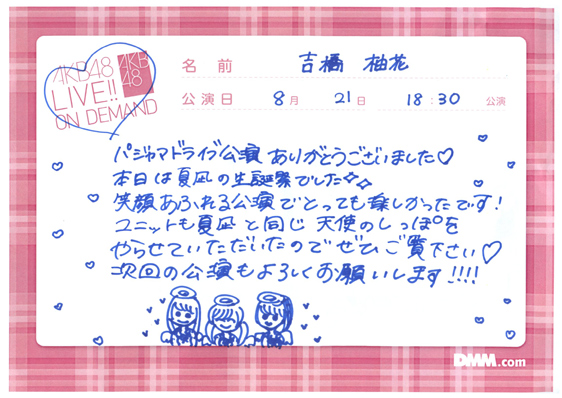 AKB48
LIVE!!
ON DEMAND
AKB
48
名前 吉橋 柚花
公演日 8月 21日 18:30 公演
パジャマドライブ公演 ありがとうございました♡
本日は夏凪の生誕祭でした✧✧
笑顔あふれる公演でとっても楽しかったです!
ユニットも夏凪と同じ 天使のしっぽを
やらせていただいたのでぜひご覧下さい♡
次回の公演もよろしくお願いします!!!!
DMM.com